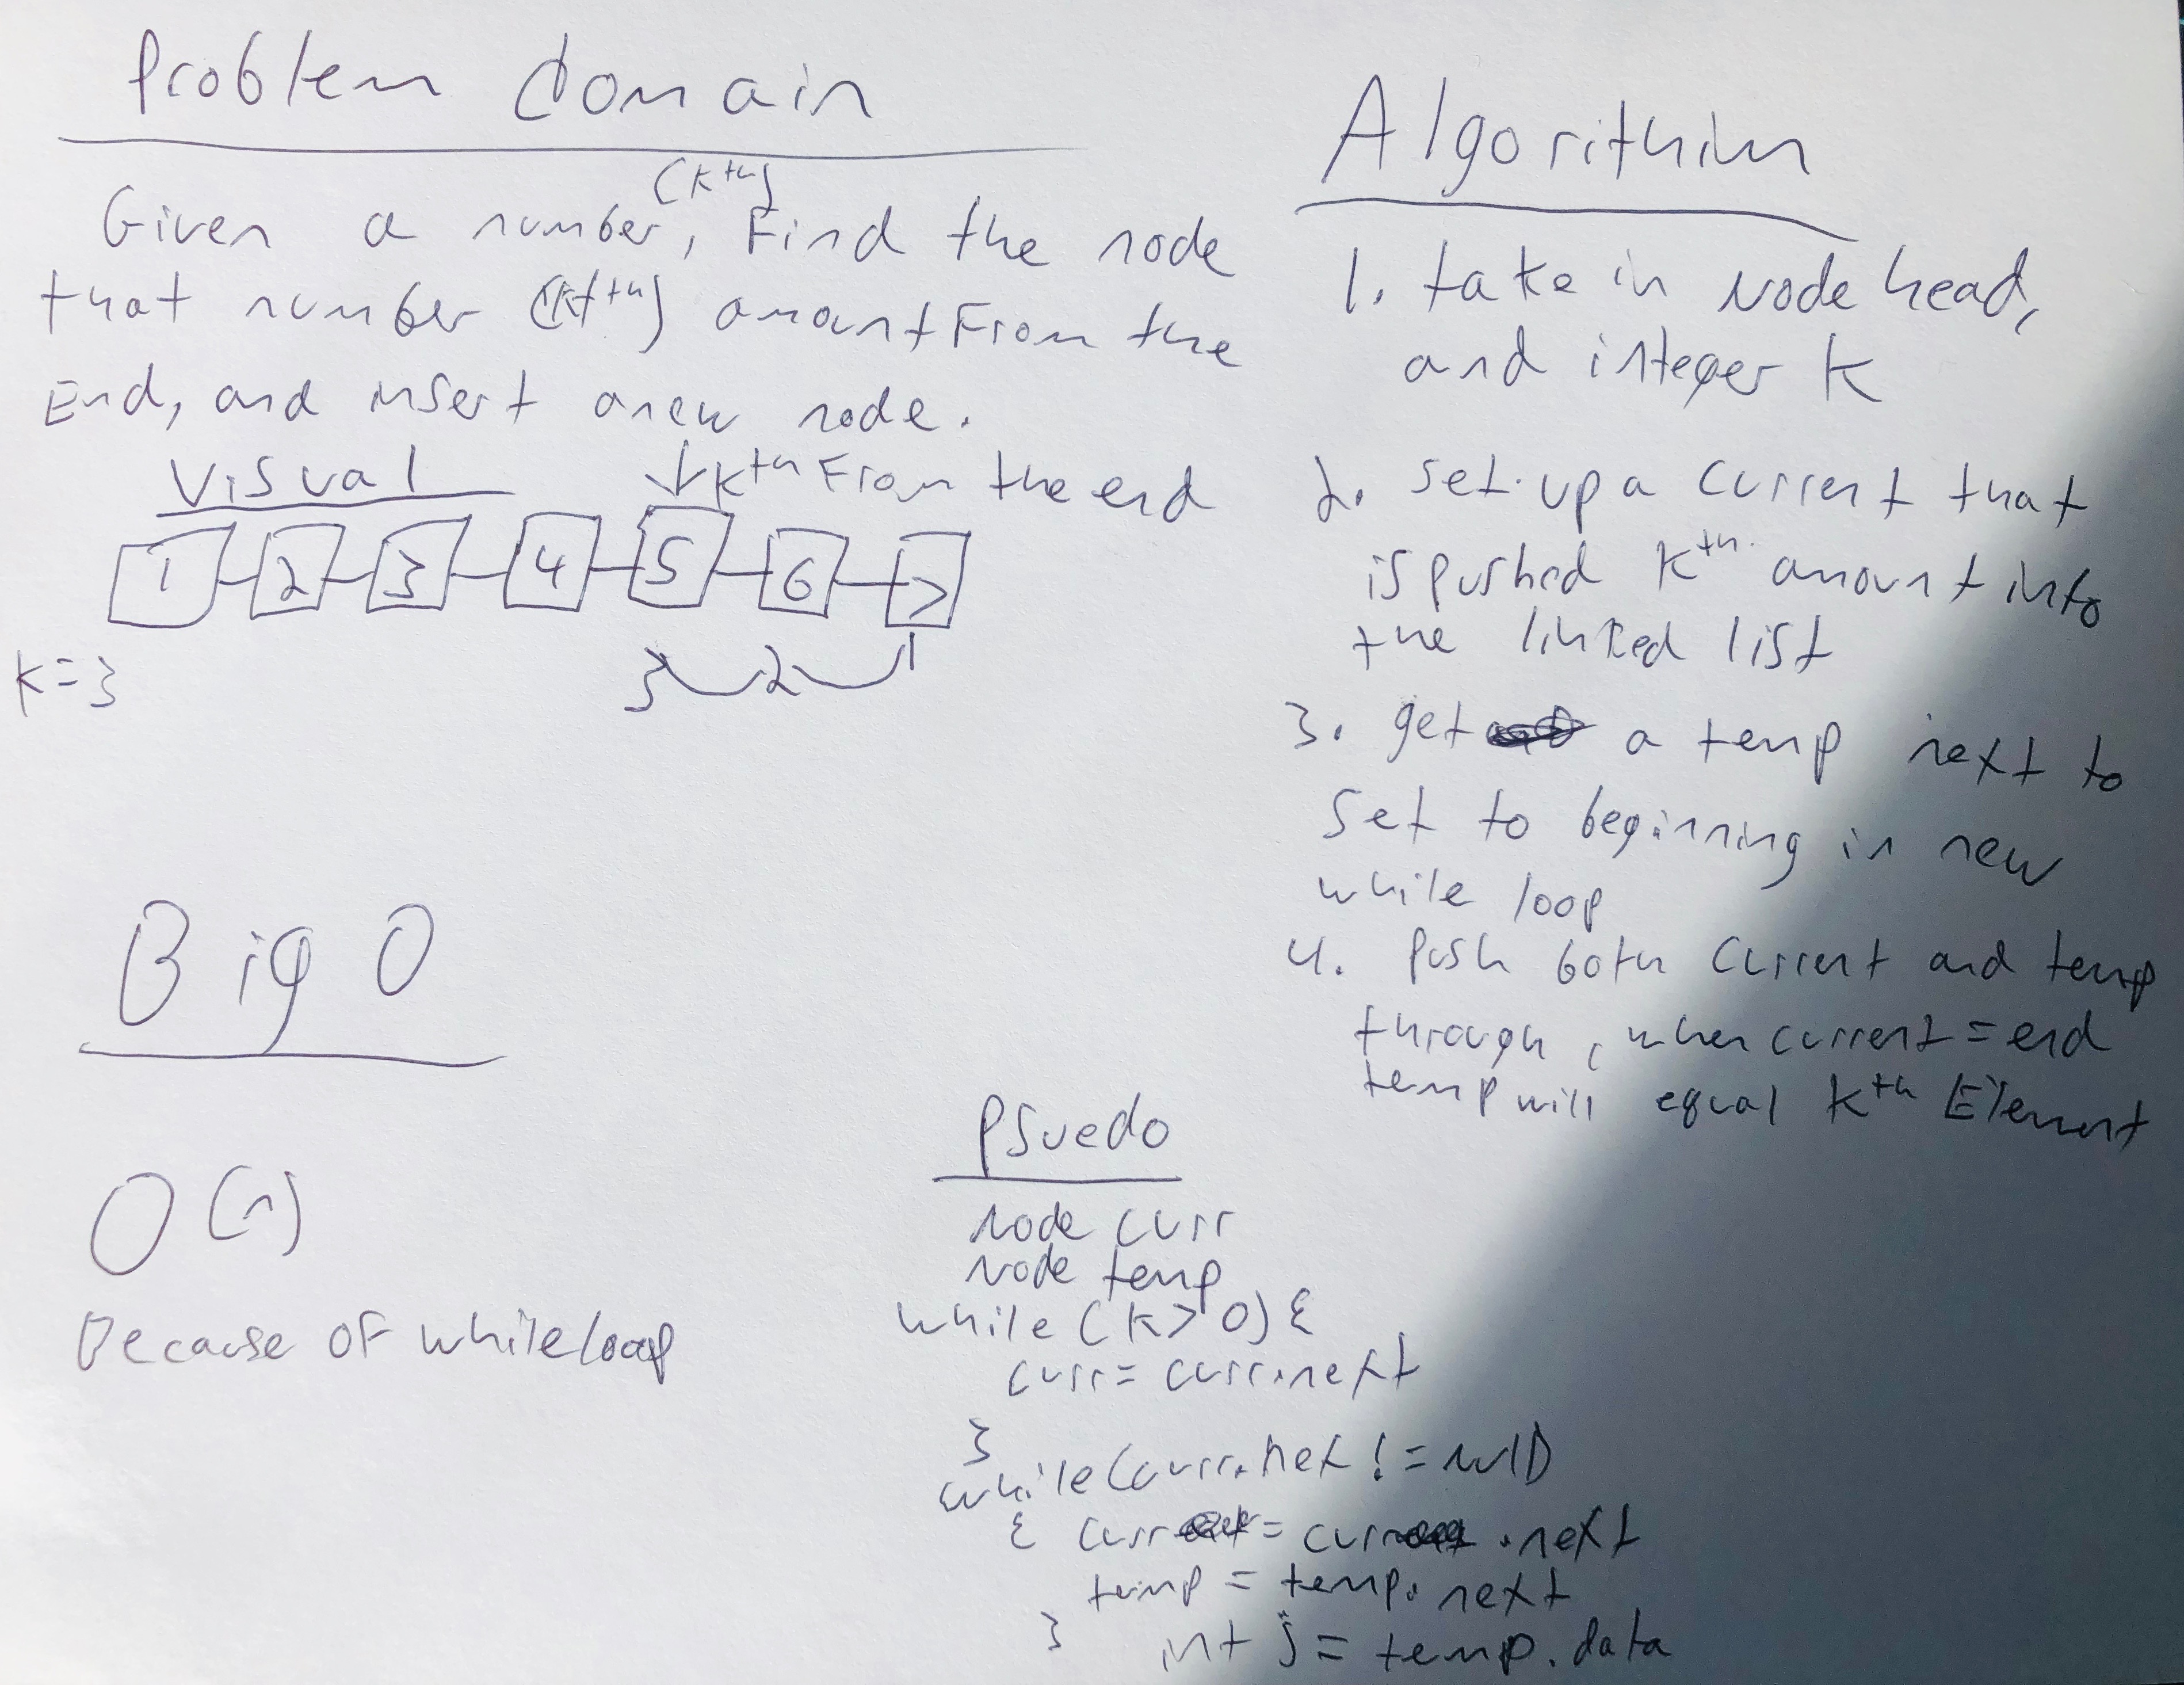 Problem domain
(kth)
Given a number, Find the node
that number (kth) amount From the
End, and insert a new node.
Visual
kth From the end
1 2 3 4 5 6 7
k=3
3 2 1
Big O
O(n)
Because of while loop
Algorithim
1. take in Node head,
and integer k
2. set up a current that
is pushed kth amount into
the linked list
3. get a temp next to
set to beginning in new
while loop
4. Push both current and temp
through, when current = end
temp will equal kth Element
Psuedo
Node curr
Node temp
while (k>0) {
curr = curr.next
}
while (curr.next != null)
{ curr = curr.next
temp = temp.next
} int j = temp.data